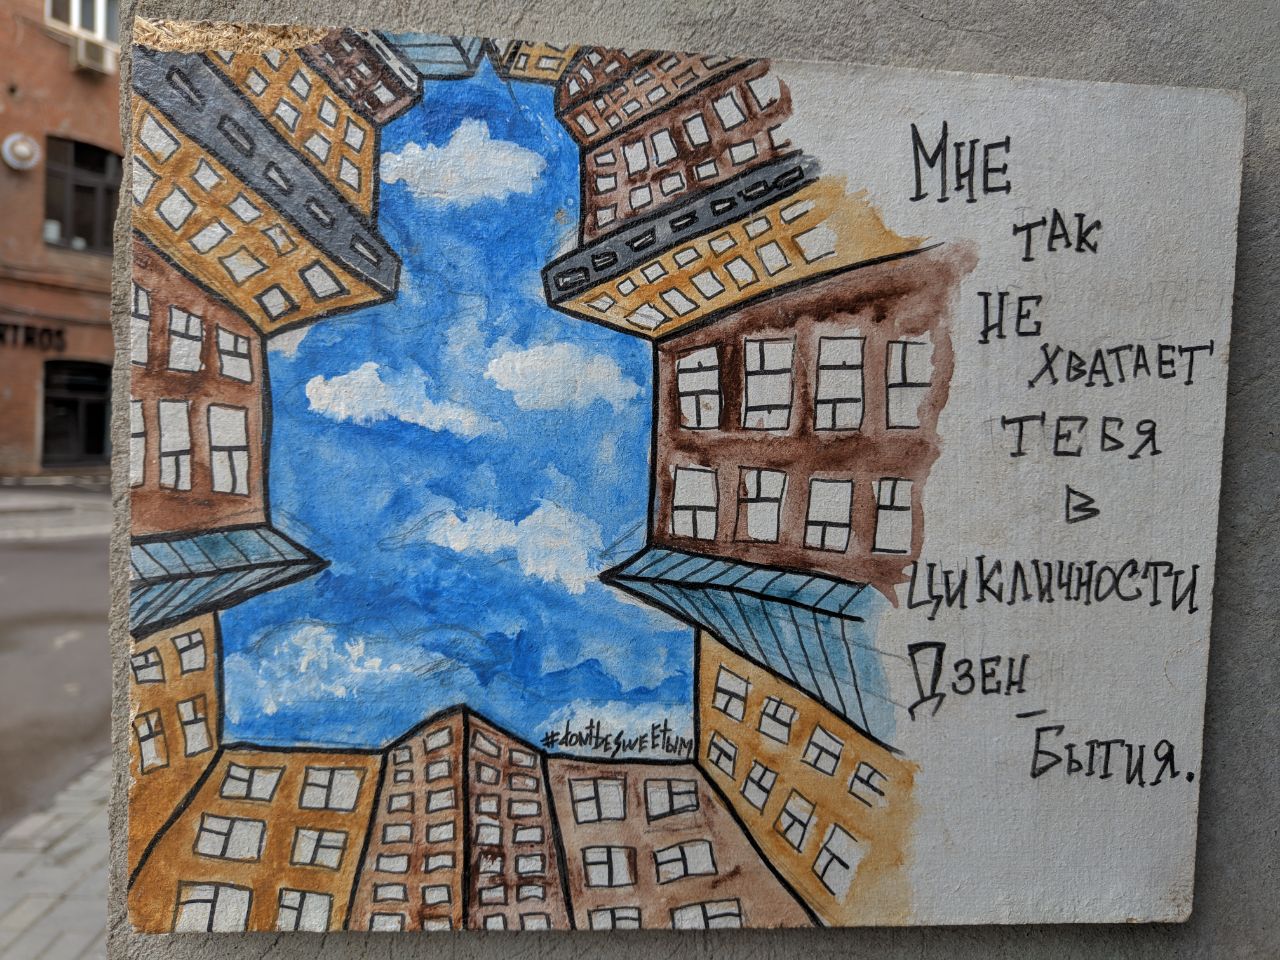 Мне
так
не
хватает
тебя
в
цикличности
Дзен_
Бытия.
#dontbesweetым